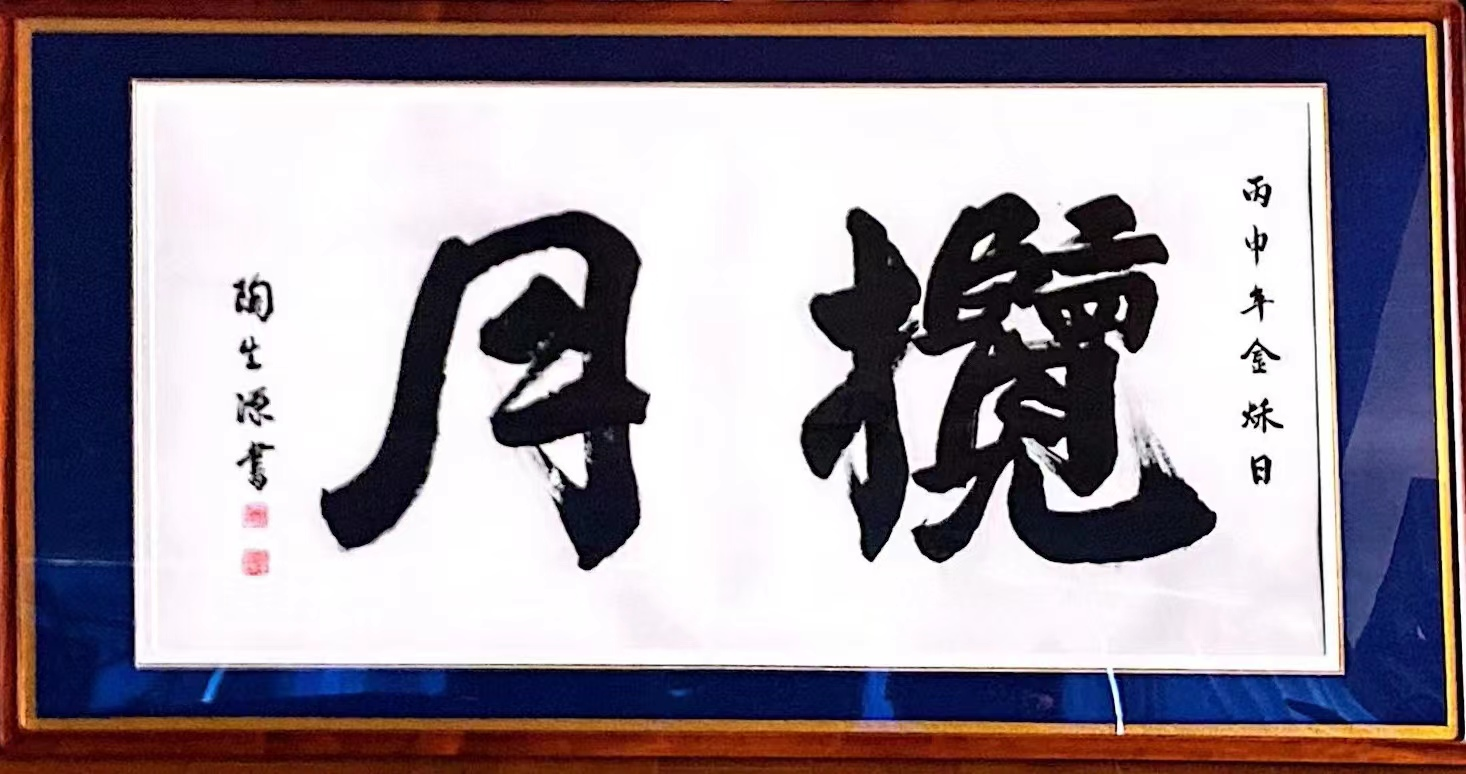 丙申年金秌日
攬月
陶生源書